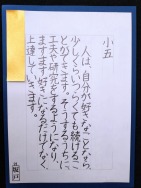 小五
人は、自分が好きなことなら、
少しくらいつらくても続けるこ
とができます。そうするうちに
工夫や研究をするようになり、
ますます好きになるだけでなく、
上達していきます。